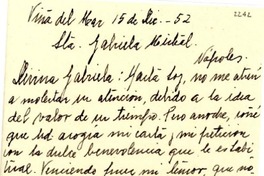 2242
Viña del Mar 15 de Dic. - 52
Sta. Gabriela Mistral.
Nápoles.
Divina Gabriela: Hasta hoy, no me atreví
a molestar su atención, debido a la idea
del valor de su tiempo. Pero anoche, soñé
que Ud acogía mi carta, mi petición
con la dulce benevolencia que le es habi
tual. Venciendo pues mi temor, que no